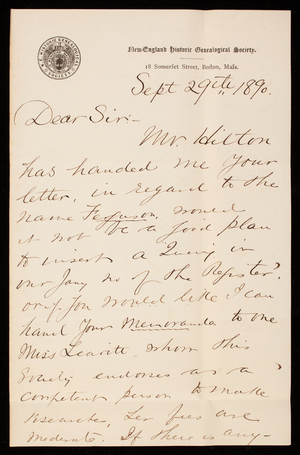 New-England Historic Genealogical Society.
18 Somerset Street, Boston, Mass.
Sept 29th, 1890.
Dear Sir:-
Mr. Hilton
has handed me your
letter, in regard to the
name Ferguson, would
it not be a good plan
to insert a Query in
our Jany no of the Register?
or if you would like I can
hand your Memoranda to one
Miss Leavitt, whom this
Society endorses as a
competent person to make
researches, her fees are
moderate. If there is any-